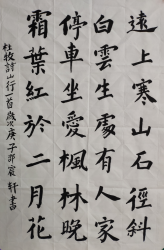 遠上寒山石徑斜
白雲生處有人家
停車坐愛楓林晚
霜葉紅於二月花
杜牧詩山行一首歲次庚子 宸軒書